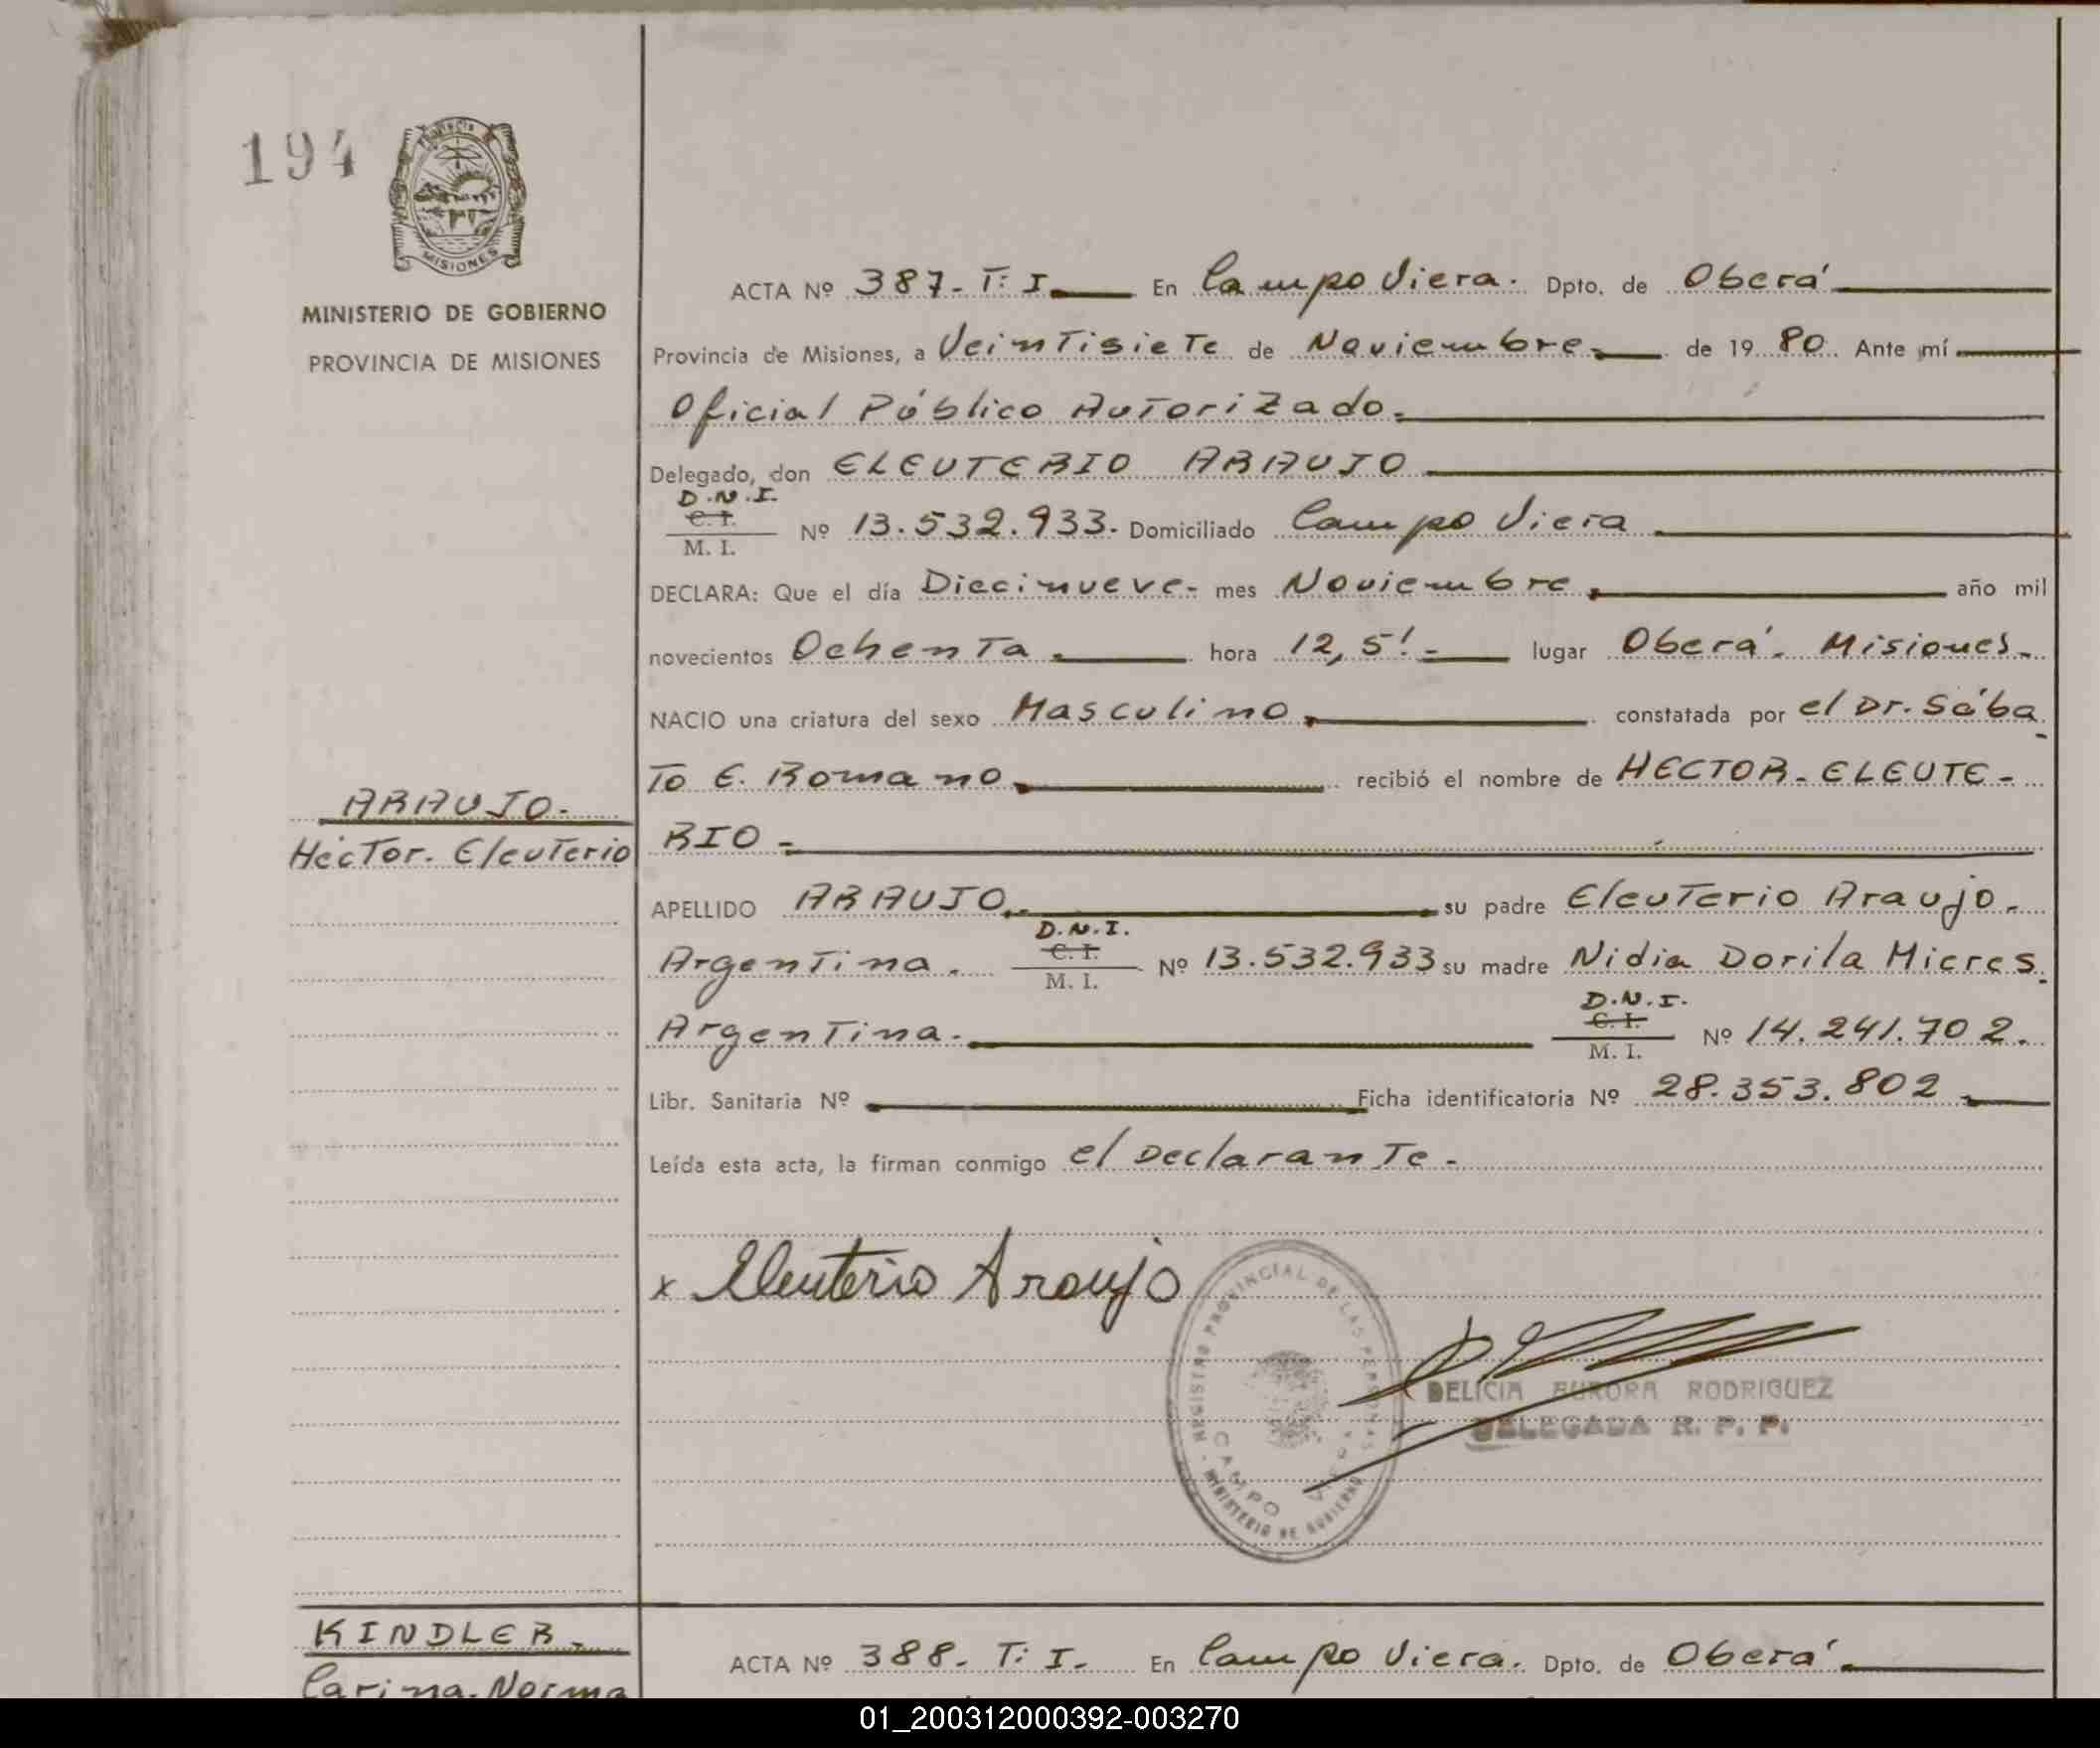 194
Provincia
MISIONES
MINISTERIO DE GOBIERNO
PROVINCIA DE MISIONES
ACTA Nº 387- T: I. En Campo Viera. Dpto. de Oberá
Provincia de Misiones, a Veintisiete de Noviembre. de 19 80. Ante mí
Oficial Público Autorizado.
Delegado, don ELEUTERIO ARAUJO
D.N.I.
C. I.
M. I. Nº 13.532.933. Domiciliado Campo Viera
DECLARA: Que el día Diecinueve- mes Noviembre. año mil
novecientos Ochenta. hora 12,5'- lugar Oberá. Misiones.
NACIO una criatura del sexo Masculino. constatada por el Dr. Sába
To E. Romano. recibió el nombre de HECTOR- ELEUTE-
ARAUJO.
RIO-
Héctor. Eleuterio
APELLIDO ARAUJO. su padre Eleuterio Araujo.
D.N.I.
Argentina. C. I. Nº 13.532.933 su madre Nidia Dorila Mieres.
M. I.
D.N.I.
Argentina. C. I. Nº 14.241.702.
M. I.
Libr. Sanitaria Nº Ficha identificatoria Nº 28.353.802
Leída esta acta, la firman conmigo el Declarante.
x Eleuterio Araujo
REGISTRO PROVINCIAL DE LAS PERSONAS
CAMPO VIERA
MINISTERIO DE GOBIERNO
DELICIA AURORA RODRIGUEZ
DELEGADA R. P. P.
KINDLER.
ACTA Nº 388. T: I. En Campo Viera. Dpto. de Oberá
Carina. Norma
01_200312000392-003270